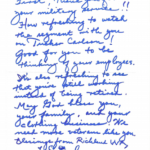 military service!!
How refreshing to watch
the segment with you
on Tucker Carlson.
Good for you to be
thinking of your employees.
It's also refreshing to see
that you're still working
instead of being retired.
May God bless you,
your family, and your
clothing business. We
need more veterans like you
Blessings from Richland WA